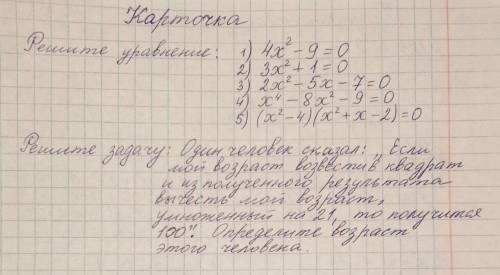 Карточка
Решите уравнение: 1) 4x² - 9 = 0
2) 3x² + 1 = 0
3) 2x² - 5x - 7 = 0
4) x⁴ - 8x² - 9 = 0
5) (x² - 4)(x² + x - 2) = 0
Решите задачу: Один человек сказал: „Если
мой возраст возвести в квадрат
и из полученного результата
вычесть мой возраст,
умноженный на 21, то получится
100". Определите возраст
этого человека.